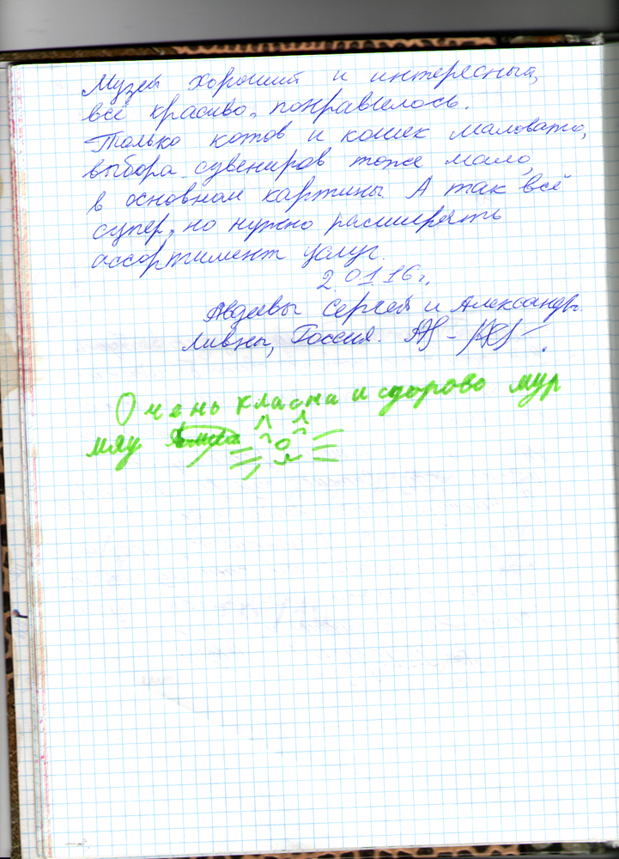 Музей хороший и интересный,
всё красиво, понравилось.
Только котов и кошек маловато,
выбора сувениров тоже мало,
в основном картины. А так всё
супер, но нужно расширять
ассортимент услуг.
2.01.16г.
Авдеевы Сергей и Александр.
Ливны, Россия.
Очень класна и здорово мур
мяу